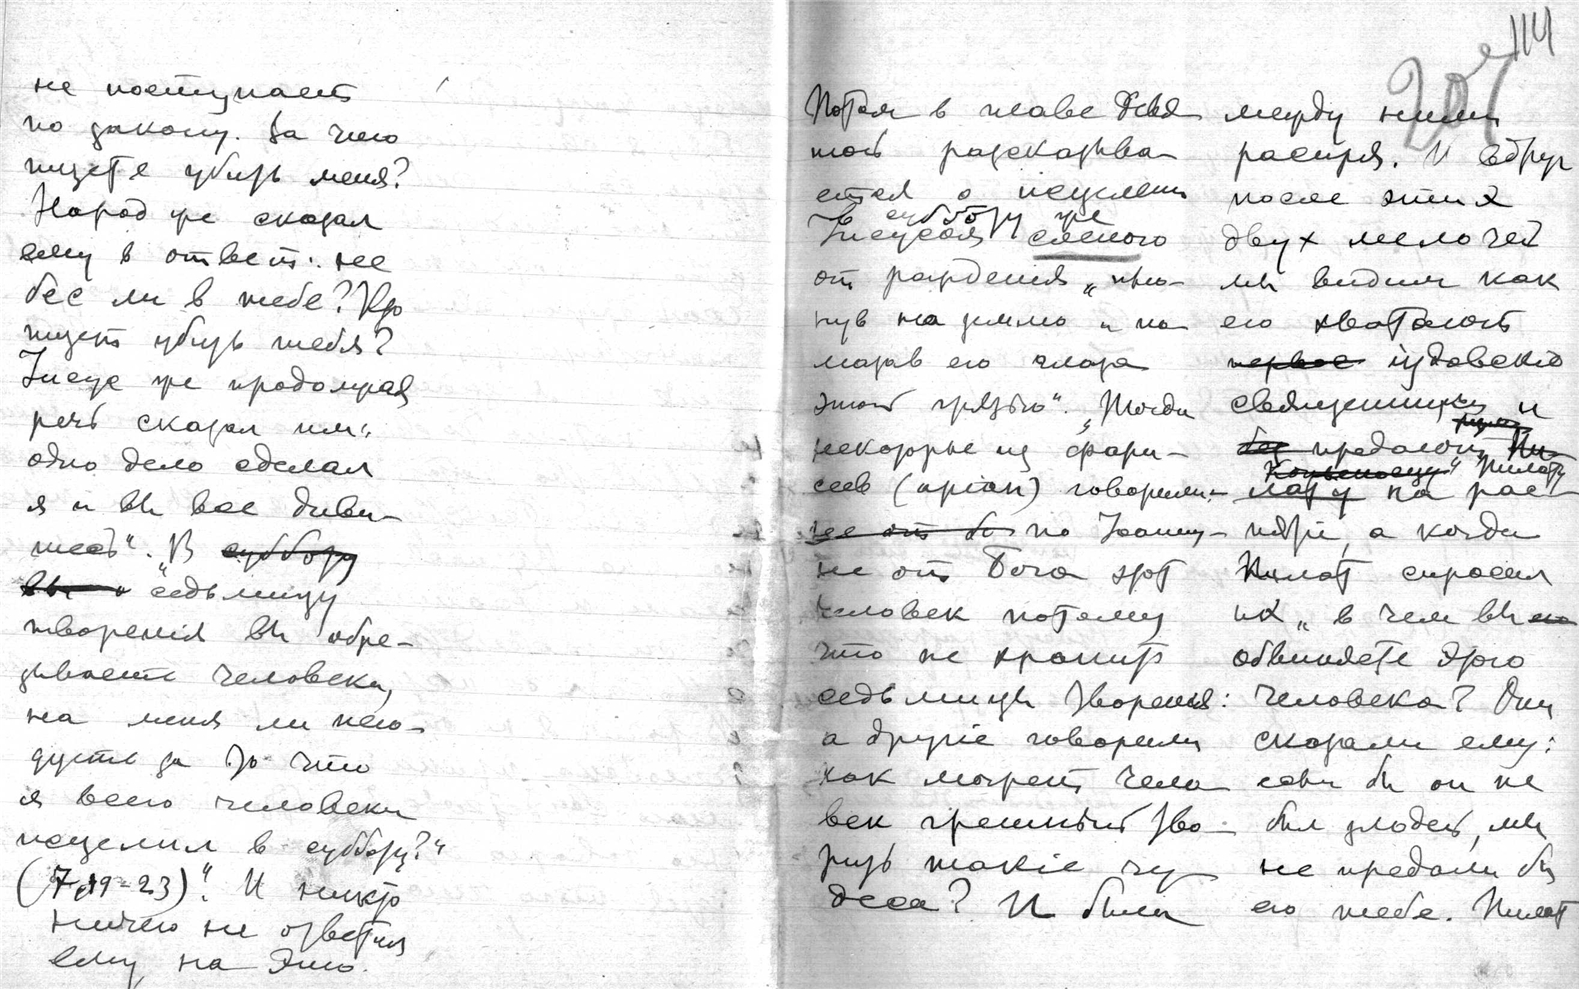 не поступаетъ
по закону. За что
ищете убить меня?
Народ же сказал
ему в ответ: не
бес ли в тебе? Кто
ищетъ убить тебя?
Іисус же продолжая
речь сказал им:
одно дело сделал
я и вы все диви-
тесь". "В субботу
вы и седьмицу
творенія вы обре-
зываете человека,
на меня ли него-
дуете за то что
я всего человека
исцелил в субботу?"
(7,19-23)". И никто
ничего не ответил
ему на это.
114
207
Потом в главе девя
той разсказыва-
ется о исцелении
в субботу же
Іисусом слепого
от рожденія „плю-
нув на землю и по
мазав его глаза
этой грязью". „Тогда
некоторые из фари-
сеев (аріан) говорили-
не от бо по Іоанну-
не от Бога этот
человек потому
что не хранитъ
седьмицы творенья:
а другіе говорили
как можетъ чело
век грешный тво-
рить такіе чу
деса? И была
между ними
распря. И вдруг
после этих
двух мелочей
мы видим как
его хватают
первое іудовскіе
священники и
без предают
"Копьеносцу" Пилату
лату на рас-
пятіе, а когда
Пилат спросил
их „в чем вы его
обвиняете этого
человека? Они
сказали ему:
если бы он не
был злодей, мы
не предали бы
его тебе. Пилат